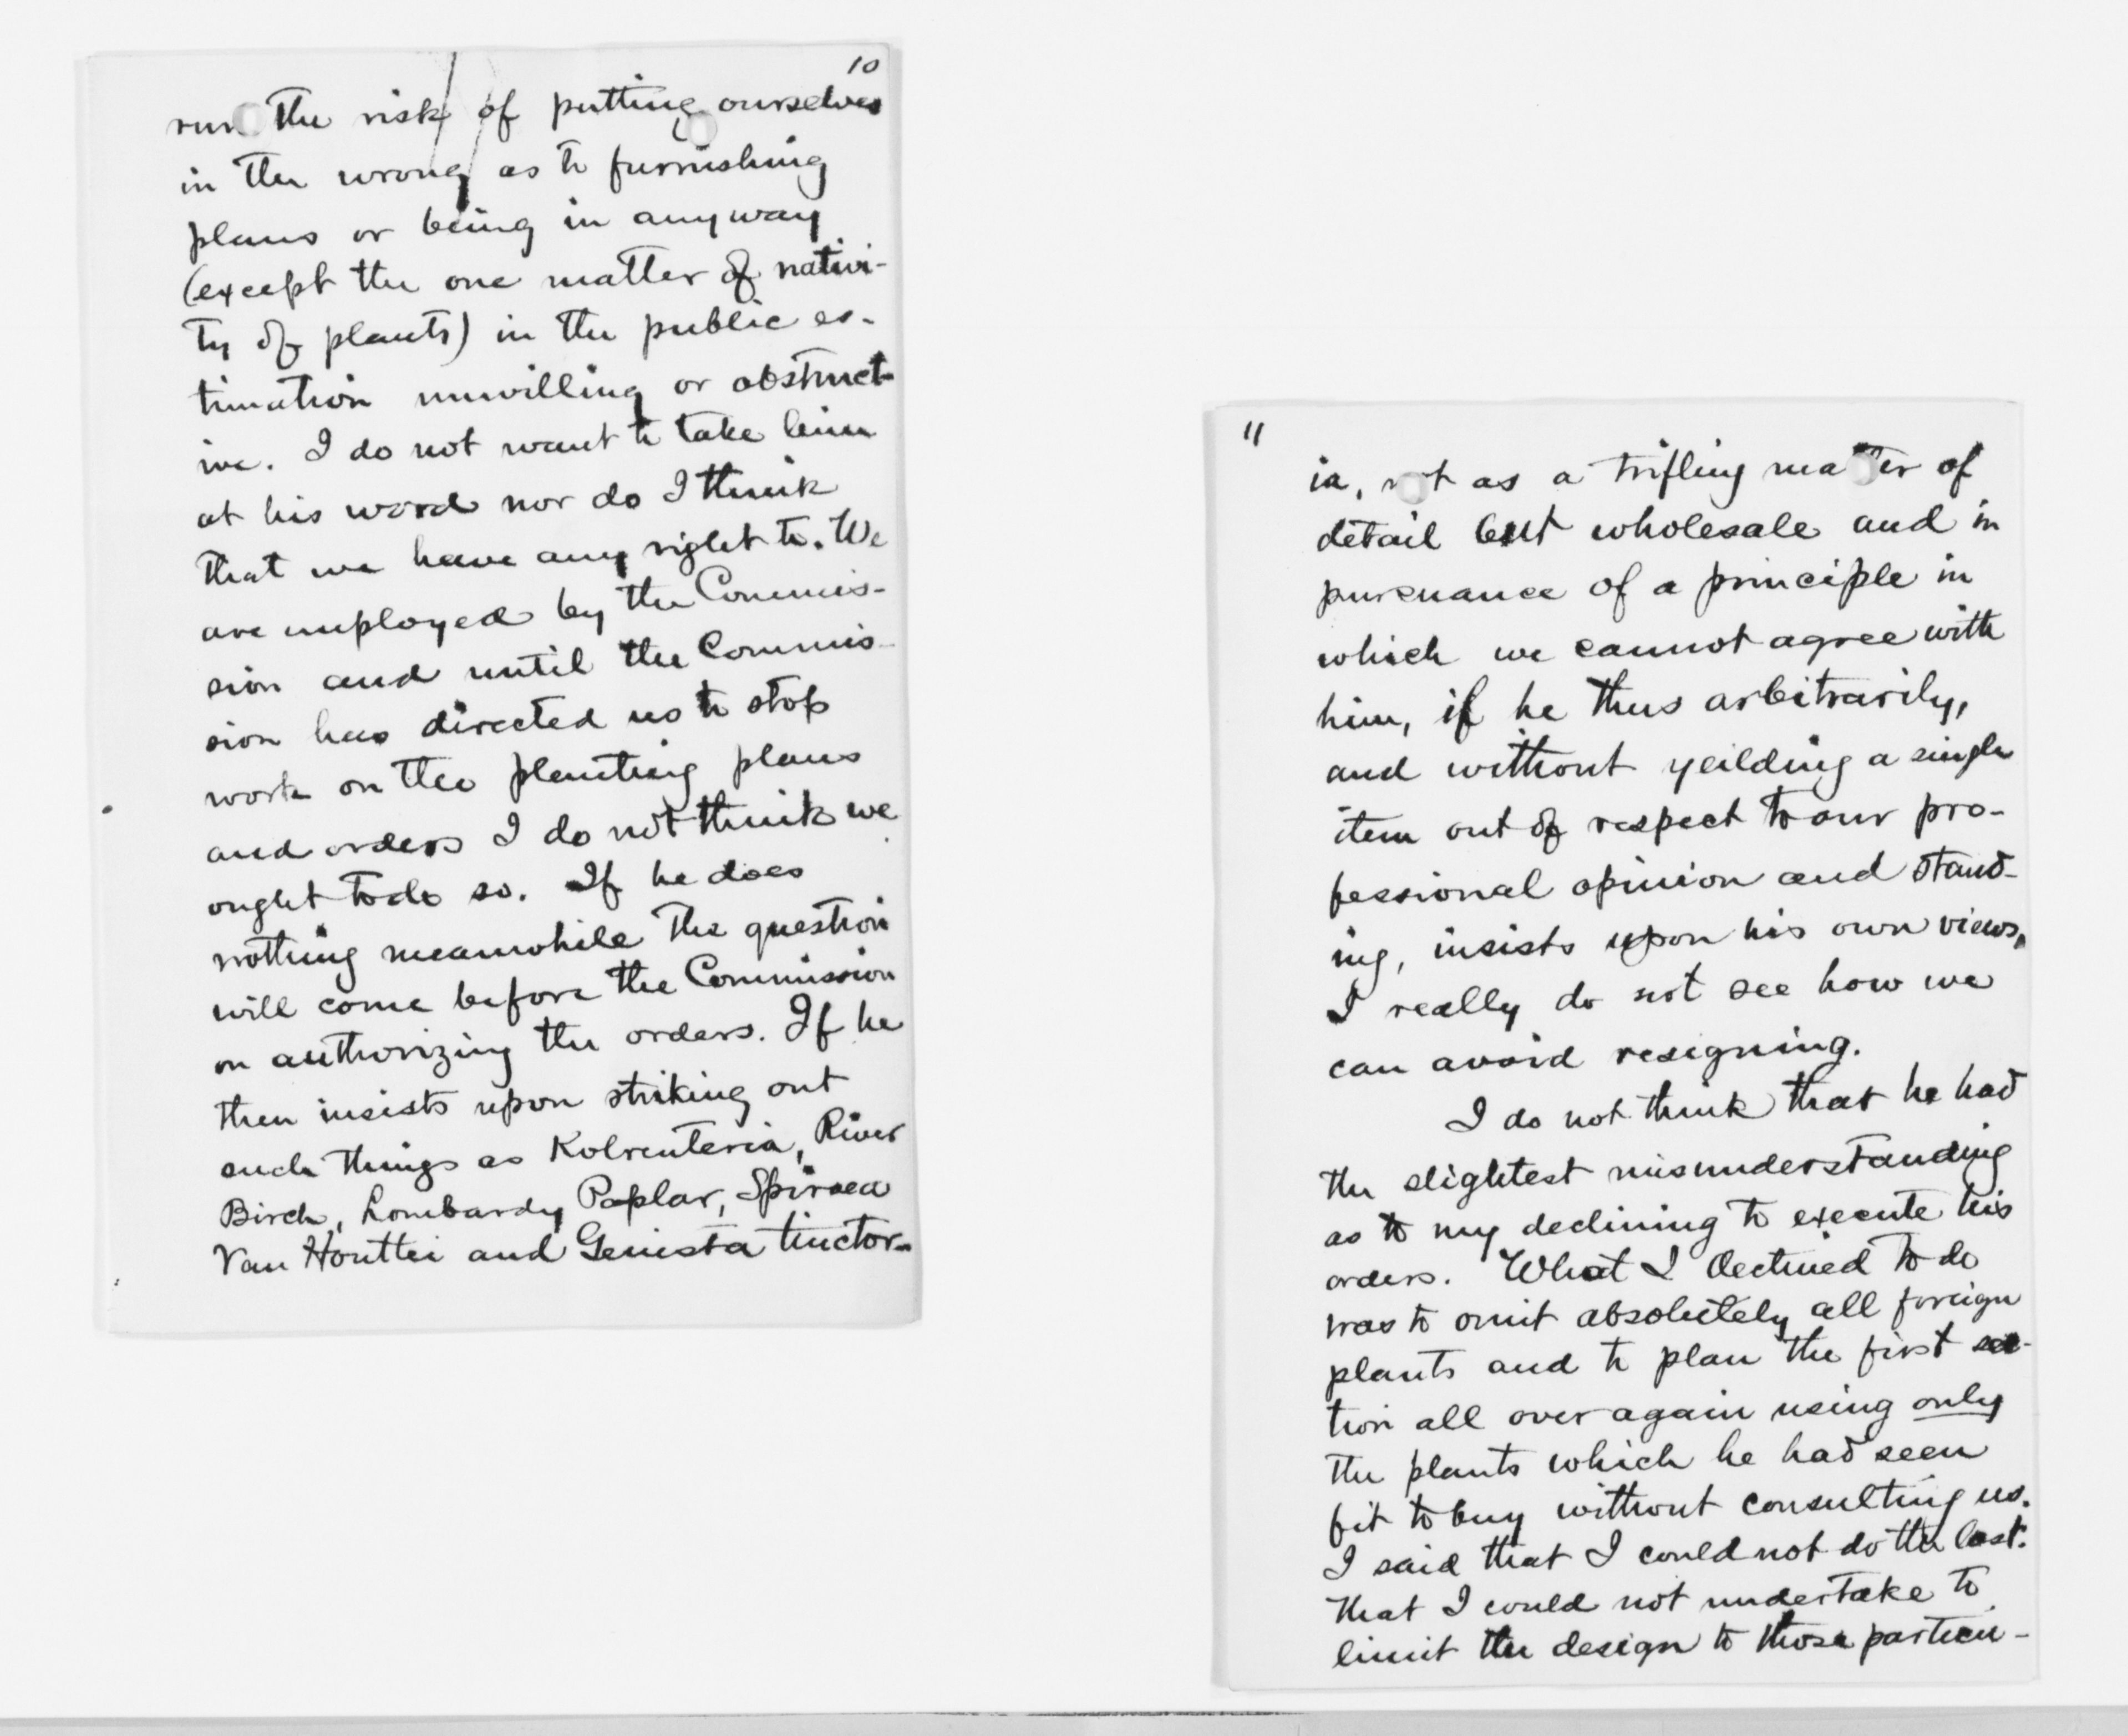 10
run the risk of putting ourselves
in the wrong as to furnishing
plans or being in anyway
(except the one matter of nativi-
ty of plants) in the public es-
timation unwilling or obstruct-
ive. I do not want to take him
at his word nor do I think
that we have any right to. We
are employed by the Commis-
sion and until the Commis-
sion has directed us to stop
work on the planting plans
and orders I do not think we
ought to do so. If he does
nothing meanwhile the question
will come before the Commission
on authorizing the orders. If he
then insists upon striking out
such things as Kolreuteria, River
Birch, Lombardy Poplar, Spiraea
Van Houttei and Genista tinctor-
11
ia, not as a trifling matter of
detail but wholesale and in
pursuance of a principle in
which we cannot agree with
him, if he thus arbitrarily,
and without yeilding a single
item out of respect to our pro-
fessional opinion and stand-
ing, insists upon his own views,
I really do not see how we
can avoid resigning.
I do not think that he had
the slightest misunderstanding
as to my declining to execute his
orders. What I declined to do
was to omit absolutely all foreign
plants and to plan the first sec-
tion all over again using only
the plants which he had seen
fit to buy without consulting us.
I said that I could not do the last.
that I could not undertake to
limit the design to those particu-